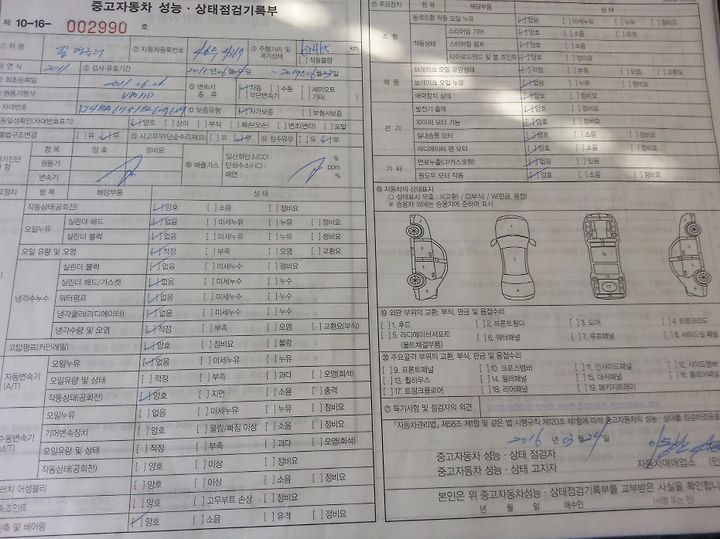 중고자동차 성능 · 상태점검기록부
제 10-16- 002990 호
① 차 명
② 자동차등록번호
③ 주행거리 및 계기상태
km
[ ] 작동불량
④ 연 식 2011
⑤ 검사 유효기간
⑥ 최초등록일
⑧ 변속기 종류
자동 [ ] 수동 [ ] 세미오토
[ ] 무단변속기 [ ] 기타( )
원동기형식
차대번호
⑩ 보증유형
자가보증 [ ] 보험사보증
동일성확인(차대번호표기)
양호 [ ] 상이 [ ] 부식 [ ] 훼손(오손) [ ] 변조(변타) [ ] 도말
불법구조변경 [ ] 유
⑬ 사고유무(단순수리제외) [ ] 유
⑭ 침수유무 [ ] 유
항 목 양 호 정비요
원동기
변속기
⑯ 배출가스
일산화탄소(CO) : %
탄화수소(HC) : ppm
매연 : %
항 목 해당부품 상 태
작동상태(공회전) 양호 [ ] 소음 [ ] 정비요
오일누유
실린더 헤드 없음 [ ] 미세누유 [ ] 누유 [ ] 정비요
실린더 블럭 없음 [ ] 미세누유 [ ] 누유 [ ] 정비요
오일 유량 및 오염 적정 [ ] 부족 [ ] 오염 [ ] 교환요
냉각수누수
실린더 블럭 없음 [ ] 미세누수 [ ] 정비요
실린더 헤드/가스켓 없음 [ ] 미세누수 [ ] 누수
워터펌프 없음 [ ] 미세누수 [ ] 누수
냉각쿨러(라디에이터) 없음 [ ] 미세누수 [ ] 누수
냉각수량 및 오염 적정 [ ] 부족 [ ] 오염 [ ] 교환요(부식)
고압펌프(커먼레일) 양호 [ ] 정비요 [ ] 불량
자동변속기 (A/T)
오일누유 없음 [ ] 미세누유 [ ] 누유 [ ] 정비요
오일유량 및 상태 [ ] 적정 [ ] 부족 [ ] 과다 [ ] 오염(희석)
작동상태(공회전) 양호 [ ] 지연 [ ] 소음 [ ] 충격
수동변속기 (M/T)
오일누유 [ ] 없음 [ ] 미세누유 [ ] 누유 [ ] 정비요
기어변속장치 [ ] 양호 [ ] 물림/빠짐 이상 [ ] 소음 [ ] 정비요
오일유량 및 상태 [ ] 적정 [ ] 부족 [ ] 과다 [ ] 오염(희석)
작동상태(공회전) [ ] 양호 [ ] 이상 [ ] 정비요
러치 어셈블리 [ ] 양호 [ ] 이상 [ ] 정비요
속죠인트 [ ] 양호 [ ] 고무부트 손상 [ ] 정비요
축 및 베어링 양호 [ ] 소음 [ ] 유격 [ ] 정비요
주요장치 항목 해당부품 상 태
조 향
동력조향 작동 오일 누유 없음 [ ] 미세누유 [ ] 누유 [ ] 정비요
작동상태
스티어링 기어 양호 [ ] 소음 [ ] 정비요
스티어링 펌프 양호 [ ] 소음 [ ] 정비요
타이로드엔드 및 볼 죠인트 양호 [ ] 정비요
제 동
브레이크 오일 유량상태 적정 [ ] 부족 [ ] 과다 [ ] 정비요
브레이크 오일 누유 없음 [ ] 누유 [ ] 정비요
배력장치 상태 양호 [ ] 정비요
전 기
발전기 출력 양호 [ ] 정비요
와이퍼 모터 기능 양호 [ ] 정비요
실내송풍 모터 양호 [ ] 소음 [ ] 정비요
라디에이터 팬 모터 양호 [ ] 소음 [ ] 정비요
기 타
연료누출(LP가스포함) 없음 [ ] 있음
윈도우 모터 작동 양호 [ ] 소음 [ ] 정비요
⑱ 자동차의 상태표시
○ 상태표시 부호 : X(교환) / C(부식) / W(판금, 용접)
※ 승용차 외에는 승용차에 준하여 표시
⑲ 외판 부위의 교환, 부식, 판금 및 용접수리
[ ] 1. 후드 [ ] 2. 프론트휀더 [ ] 3. 도어 [ ] 4. 트렁크리드
[ ] 5. 라디에이터서포트 (볼트체결부품) [ ] 6. 쿼터패널 [ ] 7. 루프패널 [ ] 8. 사이드실 패널
⑳ 주요골격 부위의 교환, 부식, 판금 및 용접수리
[ ] 9. 프론트패널 [ ] 10. 크로스멤버 [ ] 11. 인사이드패널 [ ] 12. 사이드멤버
[ ] 13. 휠하우스 [ ] 14. 필러패널 [ ] 15. 대쉬패널 [ ] 16. 플로어패널
[ ] 17. 트렁크플로어 [ ] 18. 리어패널 [ ] 19. 패키지트레이
㉑ 특기사항 및 점검자의 의견
「자동차관리법」 제58조 제1항 및 같은 법 시행규칙 제120조 제1항에 따라 중고자동차의 성능 · 상태를
2016 년 03 월 24 일
중고자동차 성능 · 상태 점검자
중고자동차 성능 · 상태 고지자 자동차매매업소
본인은 위 중고자동차성능 · 상태점검기록부를 교부받은 사실을 확인합니
년 월 일 매수인 (서명 또는 인)